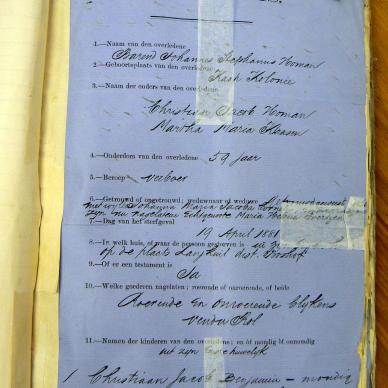 1.—Naam van den overledene
Barend Johannes Stephanus Homan
2.—Geboorteplaats van den overledene
Kaap Kolonie
3.—Naam der ouders van den overledene
Christiaan Jacob Homan
Martha Maria
4.—Ouderdom van den overledene 59 jaar
5.—Beroep veeboer
6.—Getrouwd of ongetrouwd; weduwnaar of weduwe
Johanna Maria Jacoba
zyn nu nagelaten Echtgenoote Maria
7.—Datum van het sterfgeval
19 April 1881
8.—In welk huis, of waar de persoon gestorven is
op de plaats dist.
9.—Of er een testament is
Ja
10.—Welke goederen nagelaten; roerende of onroerende, of beide
Roerende En onroerende blykens
vendu Rol
11.—Namen der kinderen van den overledene; en bi mondig bi onmondig
uit zyn huwelyk
1 Christiaan Jacob Benjamin — mondig